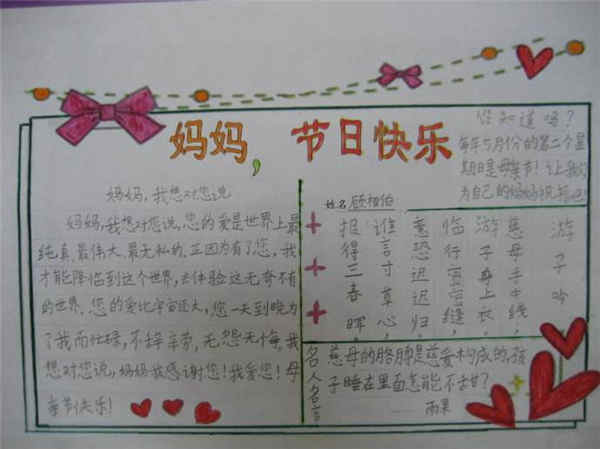 妈妈，节日快乐
妈妈，我想对您说
妈妈，我想对您说，您的爱是世界上最
纯真、最伟大、最无私的，正因为有了您，我
才能降临到这个世界，去体验这无奇不有
的世界，您的爱比宇宙还大，您一天到晚为
了我而忙碌，不辞辛劳，无怨无悔，我
想对您说，妈妈我感谢您！我爱您！母
亲节快乐！
您知道吗？
每年5月份的第二个星
期日是母亲节！让我们
为自己的妈妈祝
姓名
游子吟
慈母手中线，
游子身上衣，
临行密密缝，
意恐迟迟归，
谁言寸草心，
报得三春晖
名人名言
慈母的胳膊是慈爱构成的，孩
子睡在里面怎能不甜？
——雨果